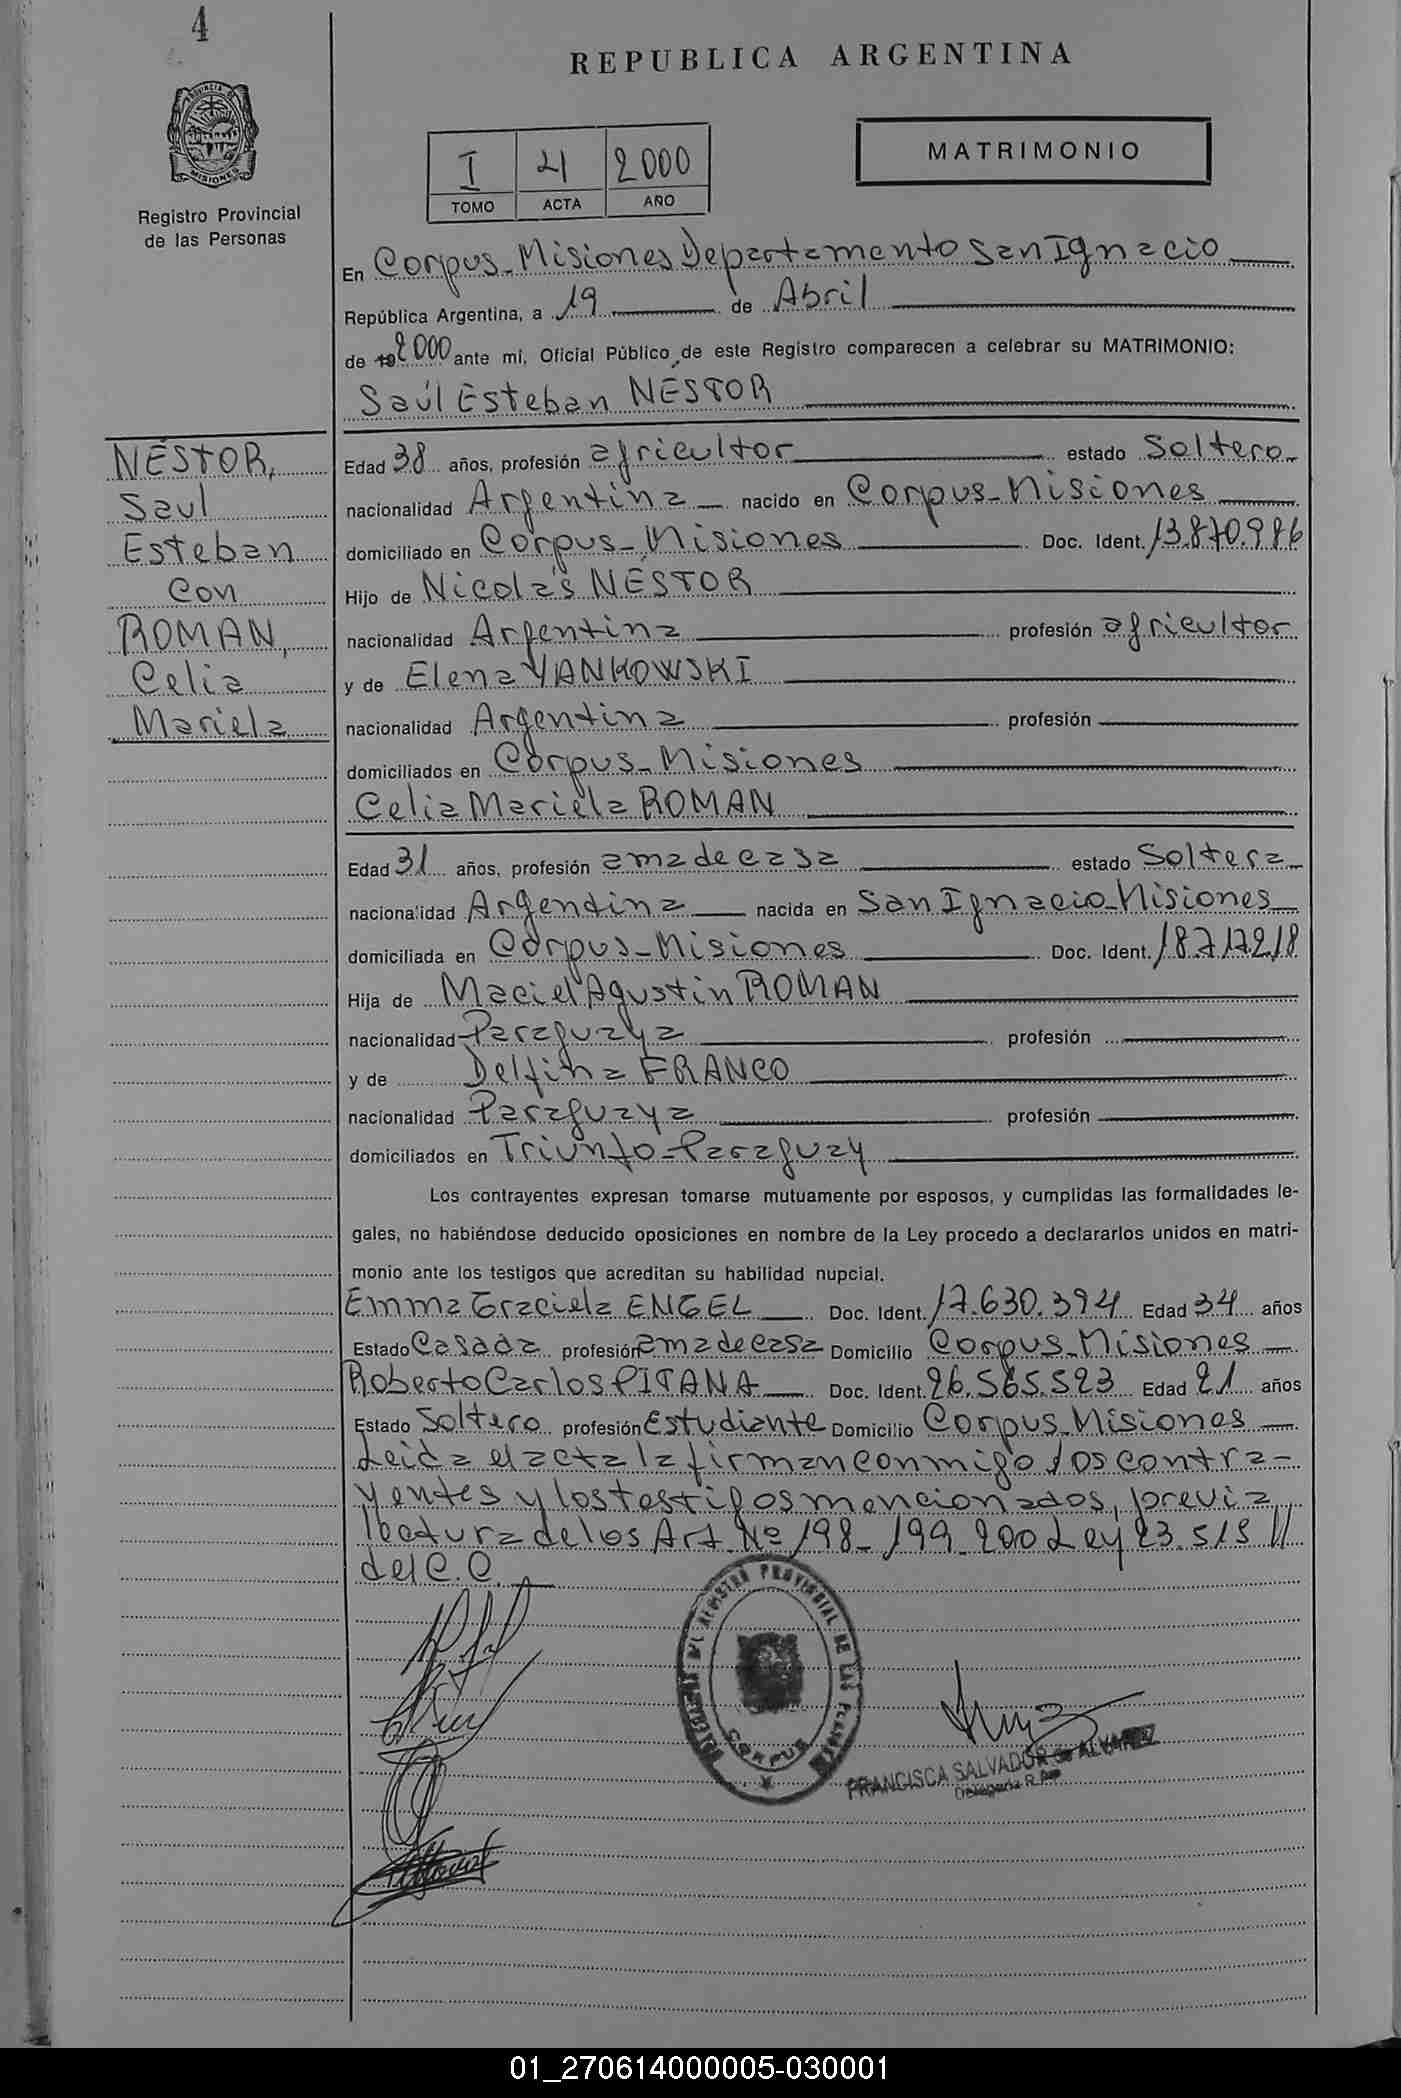 4
REPUBLICA ARGENTINA
PROVINCIA DE
MISIONES
Registro Provincial
de las Personas
I 4 2000
TOMO ACTA AÑO
MATRIMONIO
En Corpus-Misiones Departamento San Ignacio
República Argentina, a 19 de Abril
de 2000 ante mí, Oficial Público de este Registro comparecen a celebrar su MATRIMONIO:
Saúl Esteban NÉSTOR
NÉSTOR,
Saul
Esteban
Con
ROMAN,
Celia
Mariela
Edad 38 años, profesión agricultor estado Soltero
nacionalidad Argentina nacido en Corpus-Misiones
domiciliado en Corpus-Misiones Doc. Ident. 13.870.986
Hijo de Nicolás NÉSTOR
nacionalidad Argentina profesión agricultor
y de Elena YANKOWSKI
nacionalidad Argentina profesión
domiciliados en Corpus-Misiones
Celia Mariela ROMAN
Edad 31 años, profesión ama de casa estado Soltera
nacionalidad Argentina nacida en San Ignacio-Misiones
domiciliada en Corpus-Misiones Doc. Ident. 18.717.218
Hija de Maciel Agustin ROMAN
nacionalidad Paraguaya profesión
y de Delfina FRANCO
nacionalidad Paraguaya profesión
domiciliados en Triunfo-Paraguay
Los contrayentes expresan tomarse mutuamente por esposos, y cumplidas las formalidades le-
gales, no habiéndose deducido oposiciones en nombre de la Ley procedo a declararlos unidos en matri-
monio ante los testigos que acreditan su habilidad nupcial.
Emma Graciela ENGEL Doc. Ident. 17.630.394 Edad 34 años
Estado Casada profesión ama de casa Domicilio Corpus-Misiones
Roberto Carlos PITANA Doc. Ident. 26.565.523 Edad 21 años
Estado Soltero profesión Estudiante Domicilio Corpus-Misiones
Leida el acta la firman conmigo los contra-
yentes y los testigos mencionados, previa
lectura de los Art. Nº 198-199-200 Ley 23.515 //
del C.C.
REGISTRO PROVINCIAL DE LAS PERSONAS
CORPUS
FRANCISCA SALVADOR de ALVAREZ
01_270614000005-030001